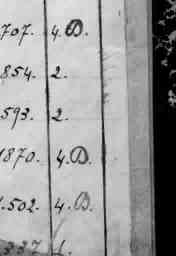 707. 4.D.
854. 2.
593. 2.
1870. 4.D.
1.502. 4.D.
337 1.